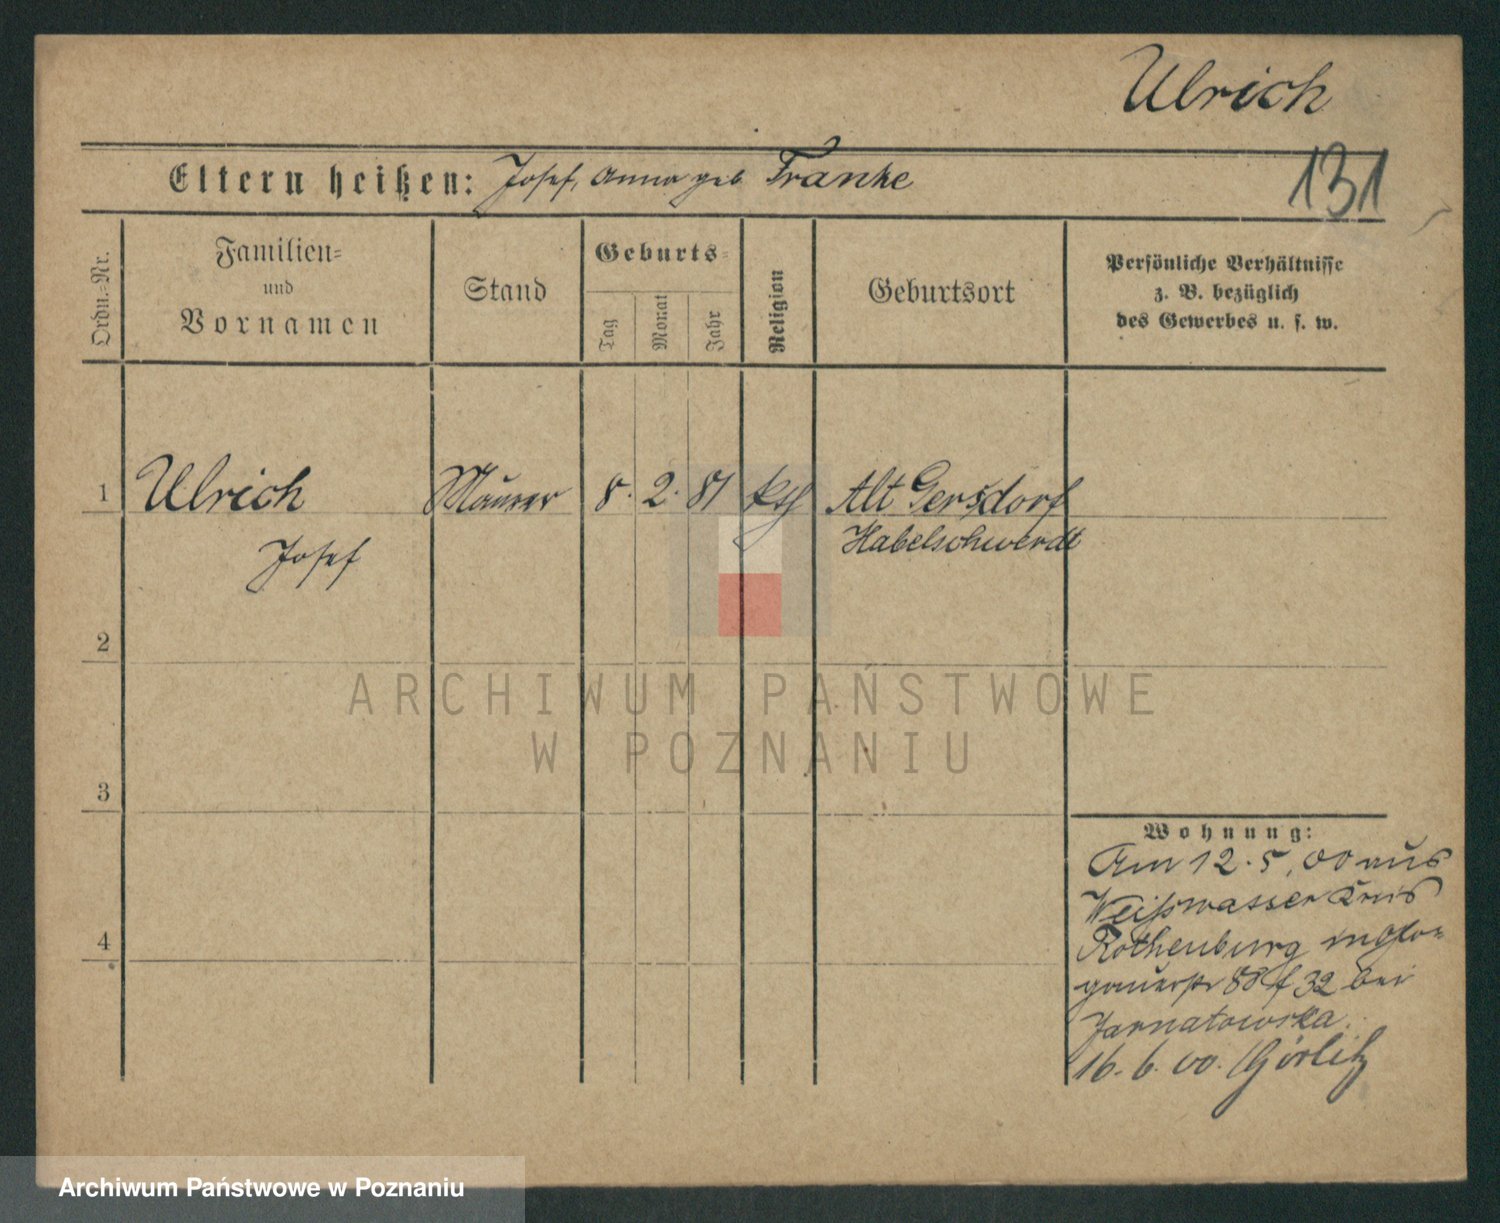 Ulrich
Eltern heißen: Josef, Anna geb Franke
131
Ordn.=Nr.
Familien=
und
Vornamen
Stand
Geburts=
Tag
Monat
Jahr
Religion
Geburtsort
Persönliche Verhältnisse
z. B. bezüglich
des Gewerbes u. s. w.
1 Ulrich Maurer 8. 2. 81 kth Alt Gersdorf
Josef Habelschwerdt
2
ARCHIWUM PAŃSTWOWE
W POZNANIU
3
Wohnung:
Am 12.5.00 aus
Weißwasser Kreis
4
Rothenburg in Glo=
gauerstr 88 f 32 bei
Jarnatowska.
16.6.00. Görlitz
Archiwum Państwowe w Poznaniu